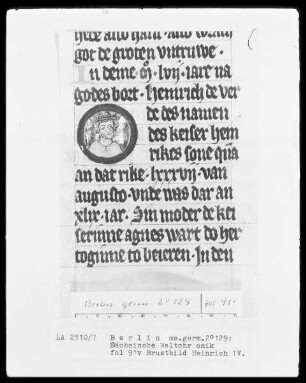 got de groten vntruwe ·
In deme · M · lvij · iare na
godes bort · Heinrich de ver
de des namen
des keiser hein
rikes sone quā
an dat rike · lxxxvij · van
augusto · vnde was dar an
xlix · iar · Sin moder de kei
serinne agnes wart do her
toginne to beieren · In den
Berlin germ. 2° 129
fol 91v
LA 2310/7
Berlin ms.germ.2°129:
Sächsische Weltchronik
fol 91v Brustbild Heinrich IV.